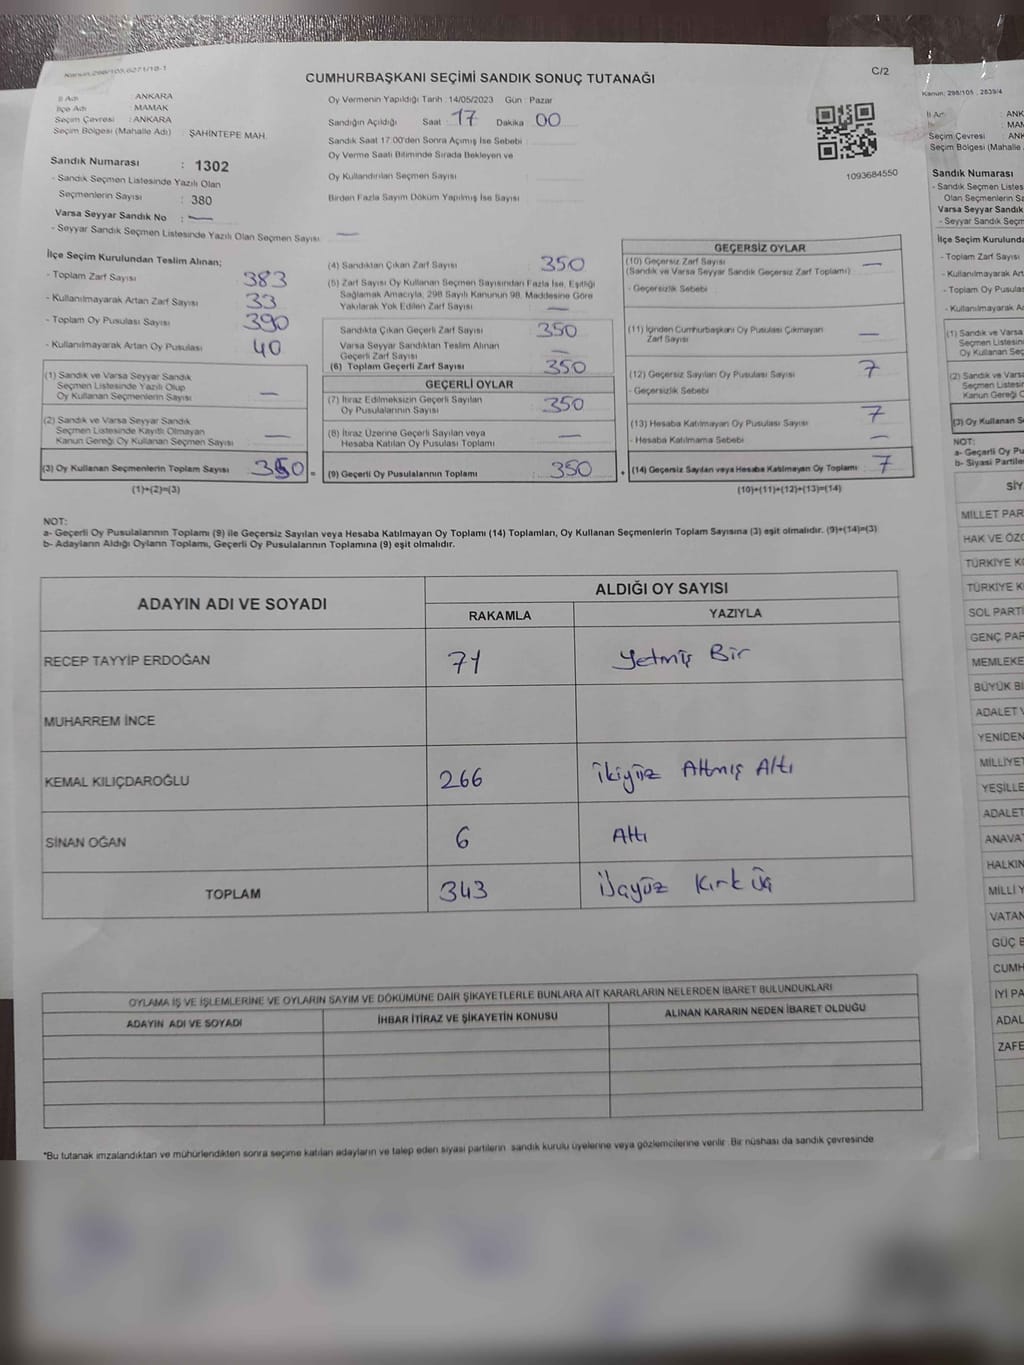 Kanun,298/105,6271/18-1
CUMHURBAŞKANI SEÇİMİ SANDIK SONUÇ TUTANAĞI
C/2
İl Adı : ANKARA
İlçe Adı : MAMAK
Seçim Çevresi : ANKARA
Seçim Bölgesi (Mahalle Adı) : ŞAHİNTEPE MAH.
Sandık Numarası : 1302
- Sandık Seçmen Listesinde Yazılı Olan
Seçmenlerin Sayısı : 380
Varsa Seyyar Sandık No : —
- Seyyar Sandık Seçmen Listesinde Yazılı Olan Seçmen Sayısı —
Oy Vermenin Yapıldığı Tarih : 14/05/2023 Gün : Pazar
Sandığın Açıldığı Saat : 17 Dakika 00
Sandık Saat 17.00'den Sonra Açımış İse Sebebi :
Oy Verme Saati Bitiminde Sırada Bekleyen ve
Oy Kullandırılan Seçmen Sayısı
Birden Fazla Sayım Döküm Yapılmış İse Sayısı
1093684550
İlçe Seçim Kurulundan Teslim Alınan;
- Toplam Zarf Sayısı : 383
- Kullanılmayarak Artan Zarf Sayısı : 33
- Toplam Oy Pusulası Sayısı : 390
- Kullanılmayarak Artan Oy Pusulası : 40
(1) Sandık ve Varsa Seyyar Sandık
Seçmen Listesinde Yazılı Olup
Oy Kullanan Seçmenlerin Sayısı : —
(2) Sandık ve Varsa Seyyar Sandık
Seçmen Listesinde Kayıtlı Olmayan
Kanun Gereği Oy Kullanan Seçmen Sayısı : —
(3) Oy Kullanan Seçmenlerin Toplam Sayısı : 350 =
(1)+(2)=(3)
(4) Sandıktan Çıkan Zarf Sayısı : 350
(5) Zarf Sayısı Oy Kullanan Seçmen Sayısından Fazla İse, Eşitliği
Sağlamak Amacıyla, 298 Sayılı Kanunun 98. Maddesine Göre
Yakılarak Yok Edilen Zarf Sayısı : —
Sandıkta Çıkan Geçerli Zarf Sayısı : 350
Varsa Seyyar Sandıktan Teslim Alınan
Geçerli Zarf Sayısı : —
(6) Toplam Geçerli Zarf Sayısı : 350
GEÇERLİ OYLAR
(7) İtiraz Edilmeksizin Geçerli Sayılan
Oy Pusulalarının Sayısı : 350
(8) İtiraz Üzerine Geçerli Sayılan veya
Hesaba Katılan Oy Pusulası Toplamı : —
(9) Geçerli Oy Pusulalarının Toplamı : 350 +
GEÇERSİZ OYLAR
(10) Geçersiz Zarf Sayısı : —
(Sandık ve Varsa Seyyar Sandık Geçersiz Zarf Toplamı)
- Geçersizlik Sebebi :
(11) İçinden Cumhurbaşkanı Oy Pusulası Çıkmayan
Zarf Sayısı : —
(12) Geçersiz Sayılan Oy Pusulası Sayısı : 7
- Geçersizlik Sebebi :
(13) Hesaba Katılmayan Oy Pusulası Sayısı : 7
- Hesaba Katılmama Sebebi : —
(14) Geçersiz Sayılan veya Hesaba Katılmayan Oy Toplamı : 7
(10)+(11)+(12)+(13)=(14)
NOT:
a- Geçerli Oy Pusulalarının Toplamı (9) ile Geçersiz Sayılan veya Hesaba Katılmayan Oy Toplamı (14) Toplamları, Oy Kullanan Seçmenlerin Toplam Sayısına (3) eşit olmalıdır. (9)+(14)=(3)
b- Adayların Aldığı Oyların Toplamı, Geçerli Oy Pusulalarının Toplamına (9) eşit olmalıdır.
ADAYIN ADI VE SOYADI
ALDIĞI OY SAYISI
RAKAMLA YAZIYLA
RECEP TAYYİP ERDOĞAN 71 Yetmiş Bir
MUHARREM İNCE
KEMAL KILIÇDAROĞLU 266 İkiyüz Altmış Altı
SİNAN OĞAN 6 Altı
TOPLAM 343 Üçyüz Kırk Üç
OYLAMA İŞ VE İŞLEMLERİNE VE OYLARIN SAYIM VE DÖKÜMÜNE DAİR ŞİKAYETLERLE BUNLARA AİT KARARLARIN NELERDEN İBARET BULUNDUKLARI
ADAYIN ADI VE SOYADI İHBAR İTİRAZ VE ŞİKAYETİN KONUSU ALINAN KARARIN NEDEN İBARET OLDUĞU
*Bu tutanak imzalandıktan ve mühürlendikten sonra seçime katılan adayların ve talep eden siyasi partilerin sandık kurulu üyelerine veya gözlemcilerine verilir. Bir nüshası da sandık çevresinde
Kanun, 298/105 , 2839/4
İl Adı : ANK
: MAM
Seçim Çevresi : ANK
Seçim Bölgesi (Mahalle
Sandık Numarası
- Sandık Seçmen Listes
Olan Seçmenlerin Sa
Varsa Seyyar Sandık
- Seyyar Sandık Seçm
İlçe Seçim Kurulund
- Toplam Zarf Sayısı
- Kullanılmayarak Arta
- Toplam Oy Pusulas
- Kullanılmayarak Ar
(1) Sandık ve Varsa
Seçmen Listesin
Oy Kullanan Seç
(2) Sandık ve Vars
Seçmen Listesin
Kanun Gereği O
(3) Oy Kullanan S
NOT:
a- Geçerli Oy Pu
b- Siyasi Partile
SİY
MİLLET PAR
HAK VE ÖZG
TÜRKİYE KO
TÜRKİYE K
SOL PARTİ
GENÇ PAR
MEMLEKE
BÜYÜK Bİ
ADALET V
YENİDEN
MİLLİYET
YEŞİLLE
ADALET
ANAVA
HALKIN
MİLLİ Y
VATAN
GÜÇ B
CUMH
İYİ PA
ADAL
ZAFE